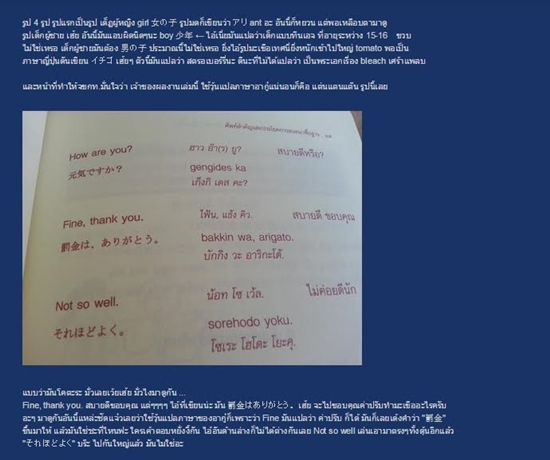 รูป 4 รูป รูปแรกเป็นรูป เด็กผู้หญิง girl 女の子 รูปมดก็เขียนว่า アリ ant อะ อันนี้ก็หยวน แต่พอเหลือบตามาดู
รูปเด็กผู้ชาย เฮ้ย อันนี้มันแอบผิดนิดๆนะ boy 少年 ← ไอ่เนี่ยมันแปลว่าเด็กแบบทีนเอจ ที่อายุระหว่าง 15-16 ขวบ
ไม่ใช่เหรอ เด็กผู้ชายมันต้อง 男の子 ประมาณนี้ไม่ใช่เหรอ ยิ่งไอ่รูปมะเขือเทศนี่ยิ่งหนักเข้าไปใหญ่ tomato พอเป็น
ภาษาญี่ปุ่นดันเขียน イチゴ เฮ้ยๆ ตัวนี้มันแปลว่า สตรอเบอร์รี่นะ ดีนะที่ไม่ได้แปลว่า เป็นพระเอกเรื่อง bleach เศร้าแพลบ
และหน้าที่ทำให้จขกท.มั่นใจว่า เจ้าของผลงานเล่มนี้ ใช้วุ้นแปลภาษาอากู๋แน่นอนก็คือ แต่นแตนแต้น รูปนี้เลย
How are you? ฮาว อ๊า(ร) ยู? สบายดีหรือ?
元気ですか? gengides ka
เก็งกิ เดส คะ?
Fine, thank you. ไฟ้น, แธ้ง คิว. สบายดี ขอบคุณ
罰金は、ありがとう。 bakkin wa, arigato.
บักกิง วะ อาริกะโต้.
Not so well. น้อท โซ เว้ล. ไม่ค่อยดีนัก
それほどよく。 sorehodo yoku.
โซเระ โฮโดะ โยะคุ.
แบบว่ามันโคตะระ มั่วเลยเว้ยเฮ้ย มั่วไงมาดูกัน ...
Fine, thank you. สบายดีขอบคุณ แต่ๆๆๆๆ ไอ่ที่เขียนน่ะมัน 罰金はありがとう。 เฮ้ย จะไปขอบคุณค่าปรับทำมะเขืออะไรครับ
อะๆ มาดูกันอันนี้แหล่ะชัดแล้วเลยว่าใช้วุ้นแปลภาษาของอากู๋ก็เพราะว่า Fine มันแปลว่า ค่าปรับ ก็ได้ มันก็เลยเด้งคำว่า "罰金"
ขึ้นมาให้ แล้วมันใช่ซะที่ไหนฟะ ใครเค้าตอบหยั่งงี้กัน ไอ้อันด้านล่างก็ไม่ได้ต่างกันเลย Not so well เล่นเอามาตรงๆทั้งดุ้นอีกแล้ว
"それほどよく" บร๊ะ ไปกันใหญ่แล้ว มันไม่ใช่อะ